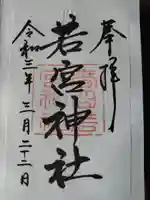 奉拝
若宮神社
令和三年三月二十二日